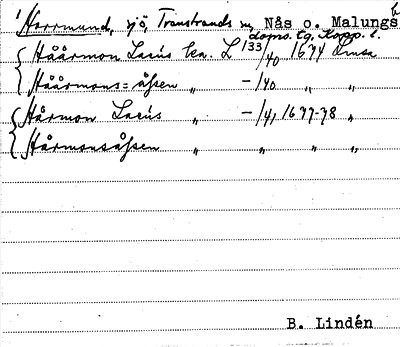 Horrmund, sjö, Transtrands sn, Nås o. Malungs
doms. tg, Kopp. l.
Håårmon Lacus ben. L 133/40 1674
Håårmons=åhsen " - /40 " "
Hårmon Lacus " - /41 1677-78 "
Hårmonsåhsen " " " "
B. Lindén